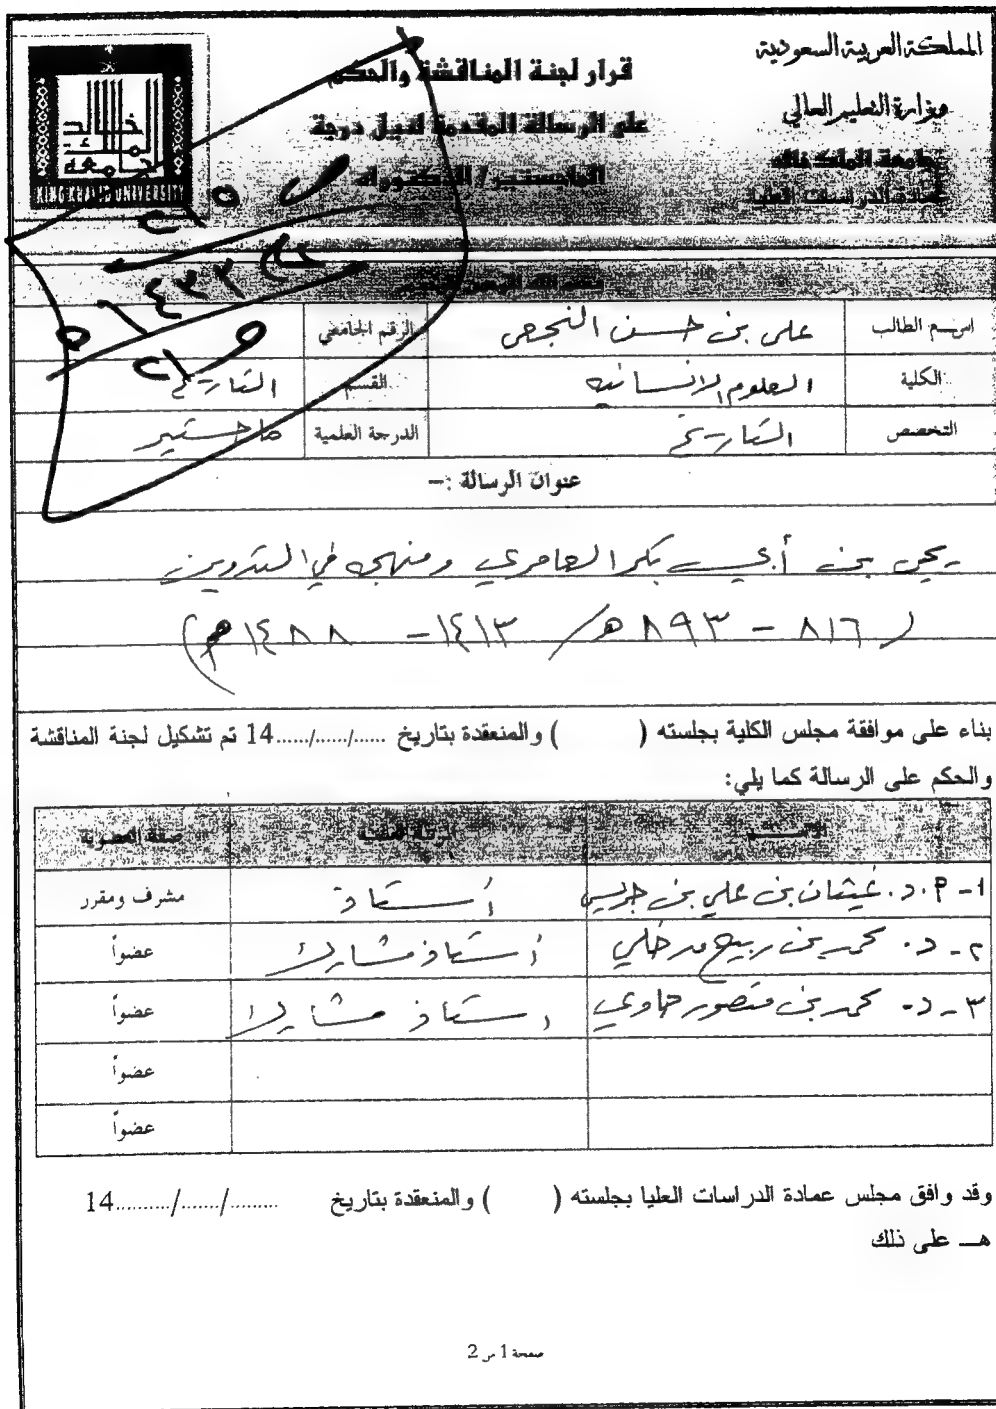 المملكة العربية السعودية
وزارة التعليم العالي
جامعة الملك خالد
عمادة الدراسات العليا
قرار لجنة المناقشة والحكم
على الرسالة المقدمة لنيل درجة
الماجستير / الدكتوراه
KING KHALID UNIVERSITY
بسم الله الرحمن الرحيم
اسم الطالب علي بن حسن النجعي الرقم الجامعي
الكلية العلوم الإنسانية القسم التاريخ
التخصص التاريخ الدرجة العلمية ماجستير
عنوان الرسالة :-
يحيى بن أبي بكر العامري ومنهجه في التدوين
(٨١٦ - ٨٩٣ هـ / ١٤١٣ - ١٤٨٨ م)
بناء على موافقة مجلس الكلية بجلسته ( ) والمنعقدة بتاريخ ....../....../......14 تم تشكيل لجنة المناقشة
والحكم على الرسالة كما يلي:
الاسم الرتبة العلمية صفة العضوية
1- أ.د. غيثان بن علي بن جريس أستاذ مشرف ومقرر
٢- د. محمد بن ربيع مدخلي أستاذ مشارك عضواً
٣- د. محمد بن منصور حاوي أستاذ مشارك عضواً
عضواً
عضواً
وقد وافق مجلس عمادة الدراسات العليا بجلسته ( ) والمنعقدة بتاريخ ........./......./..........14
هـ على ذلك
صفحة 1 من 2